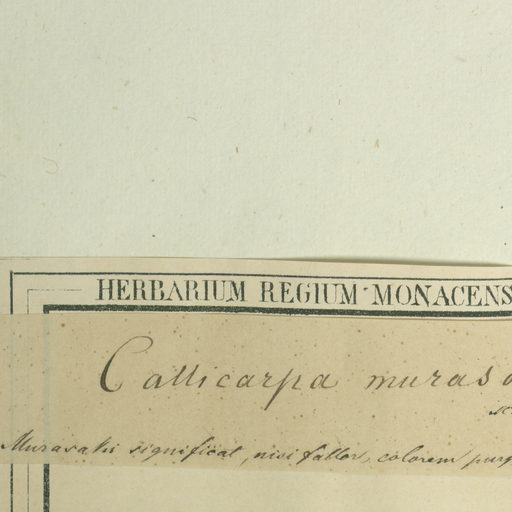 HERBARIUM REGIUM MONACENS
Callicarpa muras
Murasaki significat, nisi fallor, colorem purp